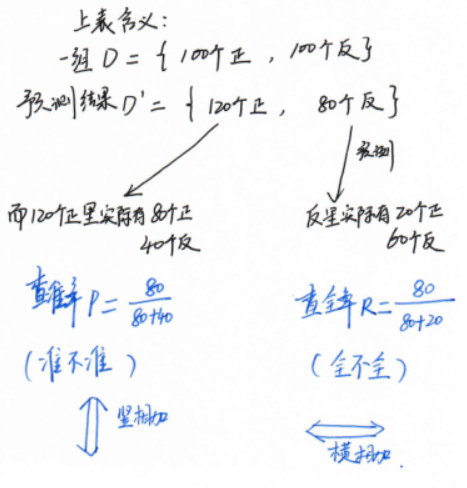 上表含义:
一组 D = { 100个正 , 100个反 }
预测结果 D' = { 120个正 , 80个反 }
预测
而120个正里实际有 80个正
40个反
反里实际有 20个正
60个反
查准率 P = 80/(80+40)
(准不准)
竖相加
查全率 R = 80/(80+20)
(全不全)
横相加.